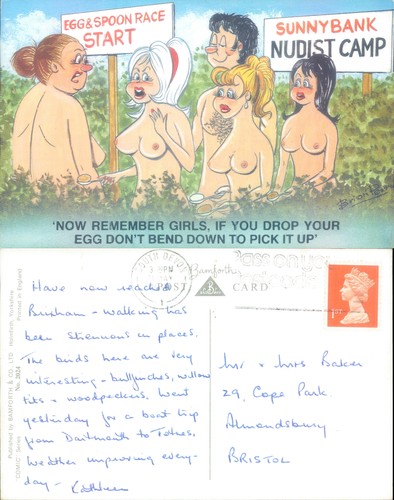 EGG & SPOON RACE
START
SUNNYBANK
NUDIST CAMP
'NOW REMEMBER GIRLS, IF YOU DROP YOUR
EGG DON'T BEND DOWN TO PICK IT UP'
SOUTH DEVON
PM
Bamforth
POST CARD
Published by BAMFORTH & CO. LTD. Holmfirth, Yorkshire
Printed in England
"COMIC" Series No. 2824
1ST
Have now reached
Brixham - walking has
been strenuous in places.
The birds here are very
interesting - bullfinches, willow
tits + woodpeckers. Went
yesterday for a boat trip
from Dartmouth to Totnes.
Weather improving every-
day - Kathleen
Mr + Mrs Baker
29, Cope Park.
Almondsbury
BRISTOL